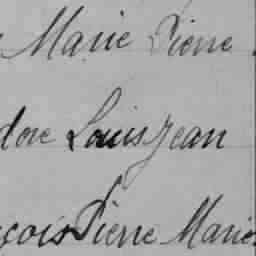 Marie Pierre
dore Louis Jean
çois Pierre Marie